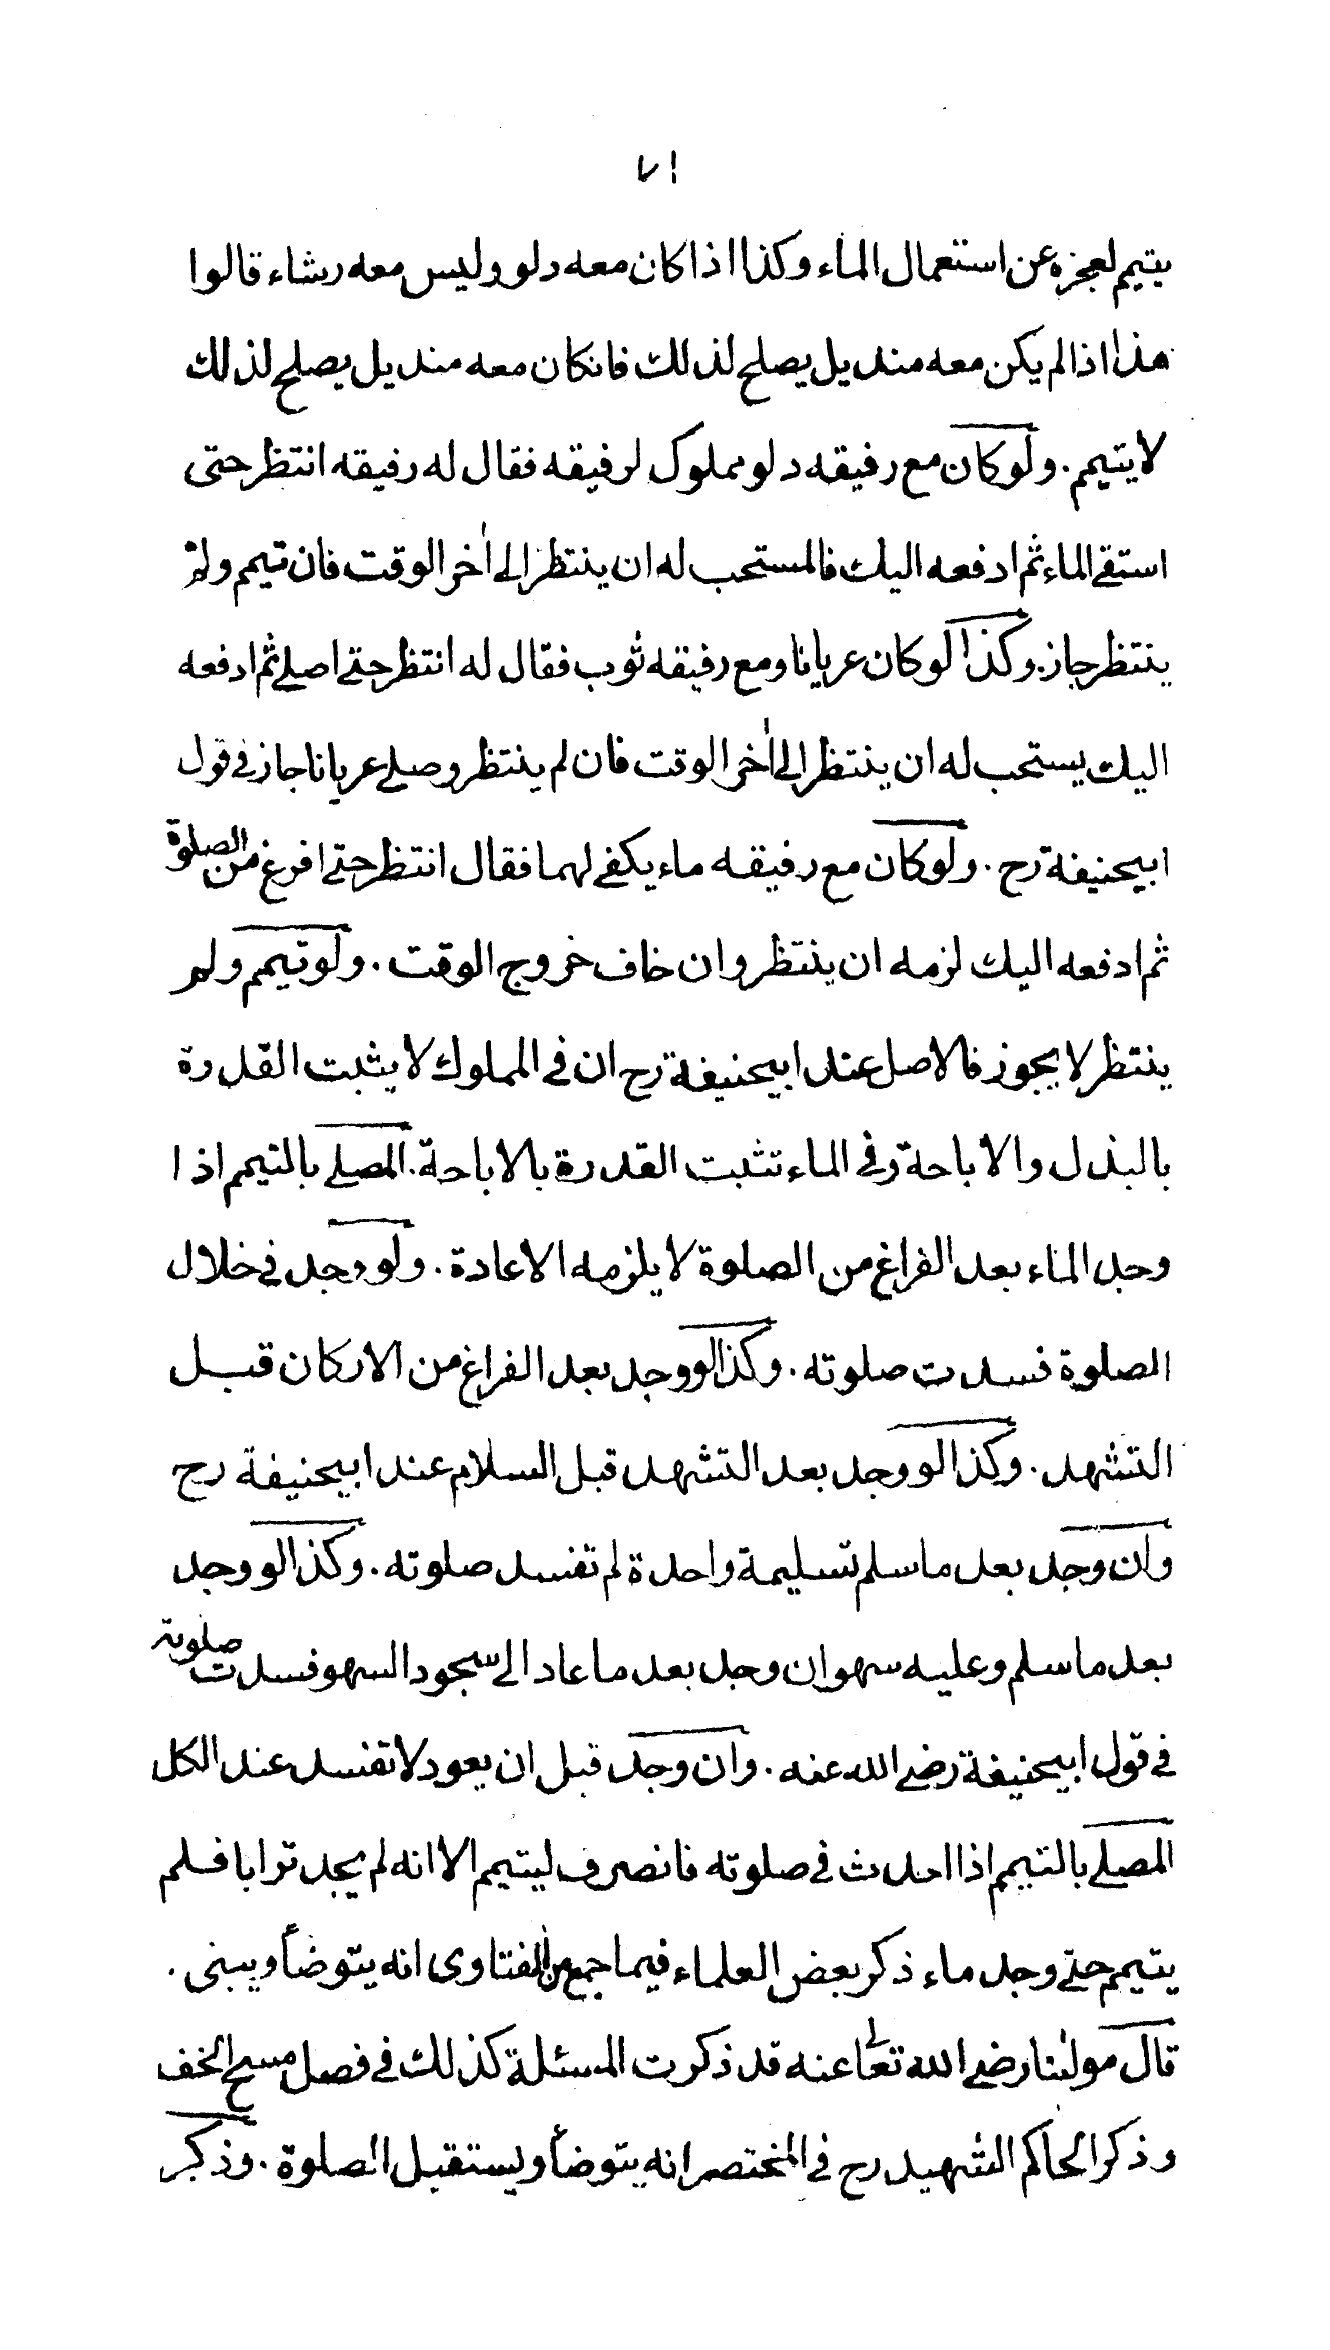 ٧١
يتيمم لعجزه عن استعمال الماء وكذا اذا كان معه دلو وليس معه رشاء قالوا
هذا اذا لم يكن معه منديل يصلح لذلك فانكان معه منديل يصلح لذلك
لا يتيمم. ولو كان مع رفيقه دلو مملوك لرفيقه فقال له رفيقه انتظر حتى
استقى الماء ثم ادفعه اليك فالمستحب له ان ينتظر الى اٰخر الوقت فان تيمم ولم
ينتظر جاز. وكذا لو كان عريانا ومع رفيقه ثوب فقال له انتظر حتى اصلى ثم ادفعه
اليك يستحب له ان ينتظر الى اٰخر الوقت فان لم ينتظر وصلى عريانا جاز في قول
ابيحنيفة رح. ولو كان مع رفيقه ماء يكفى لهما فقال انتظر حتى افرغ من الصلوة
ثم ادفعه اليك لزمه ان ينتظر وان خاف خروج الوقت. ولو تيمم ولم
ينتظر لا يجوز فالاصل عند ابيحنيفة رح ان في المملوك لا يثبت القدرة
بالبذل والاباحة وفي الماء تثبت القدرة بالاباحة. المصلى بالتيمم اذا
وجد الماء بعد الفراغ من الصلوة لا يلزمه الاعادة. ولو وجد في خلال
الصلوة فسدت صلوته. وكذا لو وجد بعد الفراغ من الاركان قبل
التشهد. وكذا لو وجد بعد التشهد قبل السلام عند ابيحنيفة رح
وان وجد بعد ما سلم تسليمة واحدة لم تفسد صلوته. وكذا لو وجد
بعد ما سلم وعليه سهو ان وجد بعد ما عاد الى سجود السهو فسدت صلوته
في قول ابيحنيفة رضى الله عنه. وان وجد قبل ان يعود لا تفسد عند الكل
المصلى بالتيمم اذا احدث في صلوته فانصرف ليتيمم الا انه لم يجد ترابا فلم
يتيمم حتى وجد ماء ذكر بعض العلماء فيما جمع من الفتاوى انه يتوضأ ويبنى.
قال مولٰنا رضى الله تعالى عنه قد ذكرت المسئلة كذلك في فصل مسح الخف
وذكر الحاكم الشهيد رح في المختصر انه يتوضأ ويستقبل الصلوة. وذكر